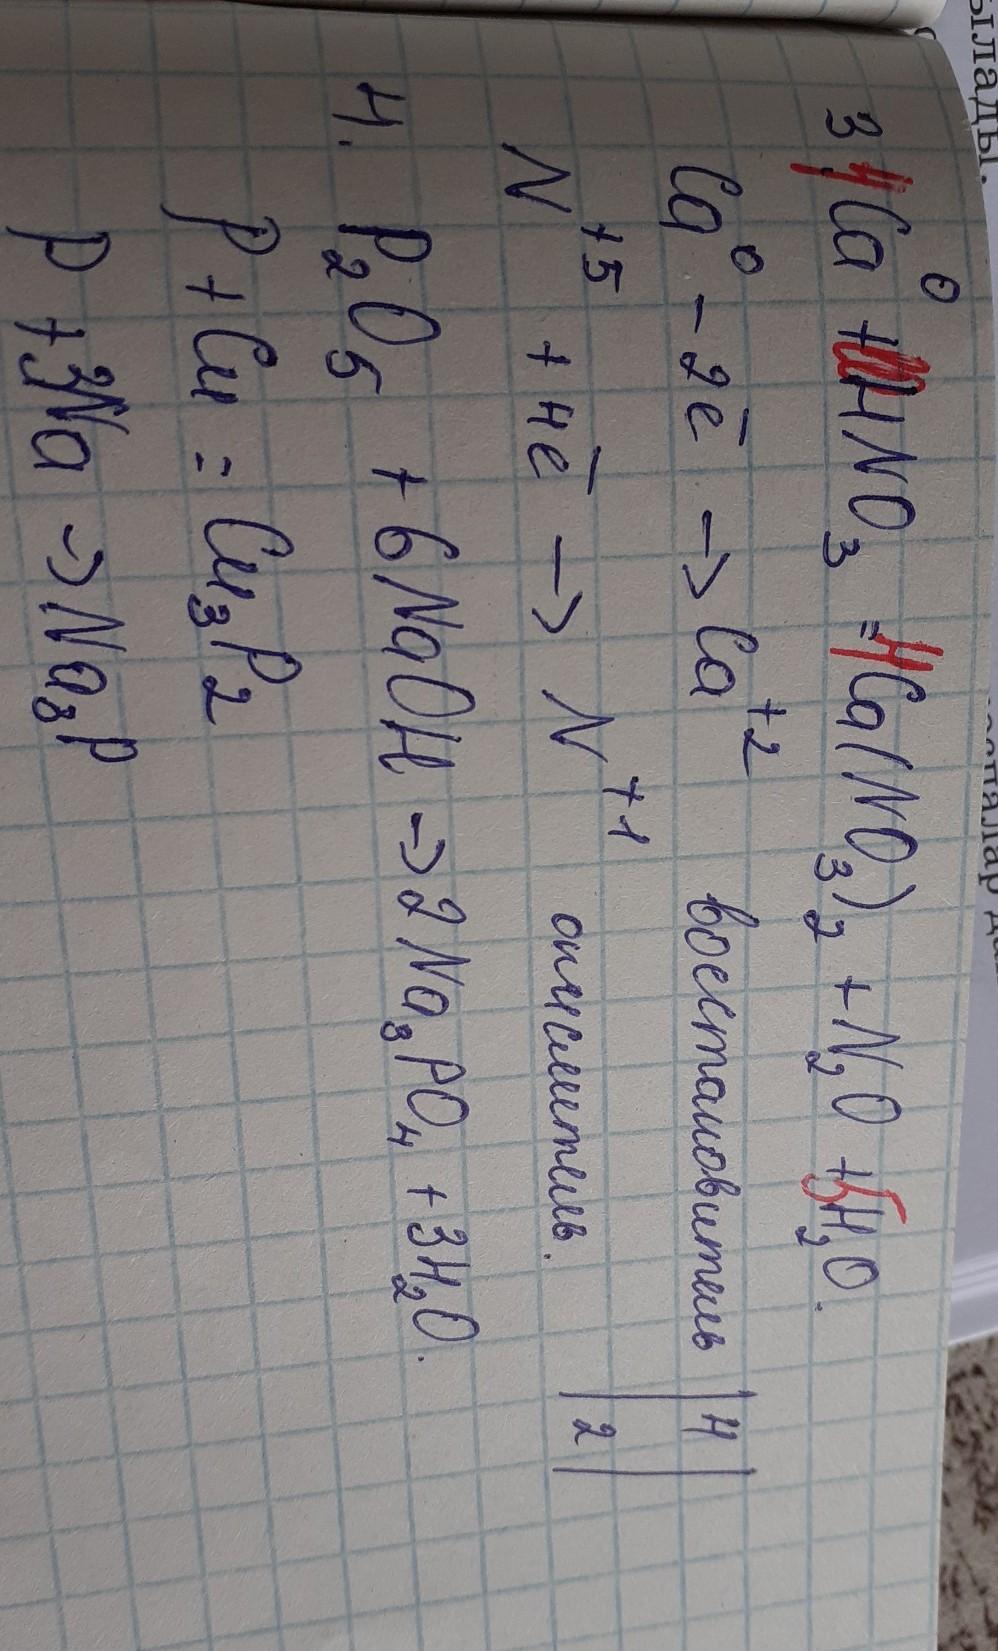 3. 4Ca⁰ + HNO₃ = 4Ca(NO₃)₂ + N₂O + 5H₂O.
Ca⁰ - 2ē → Ca⁺² восстановитель | 4 |
N⁺⁵ + 4ē → N⁺¹ окислитель. | 2 |
4. P₂O₅ + 6NaOH → 2Na₃PO₄ + 3H₂O.
P + Cu = Cu₃P₂
P + 3Na → Na₃P
ылады.